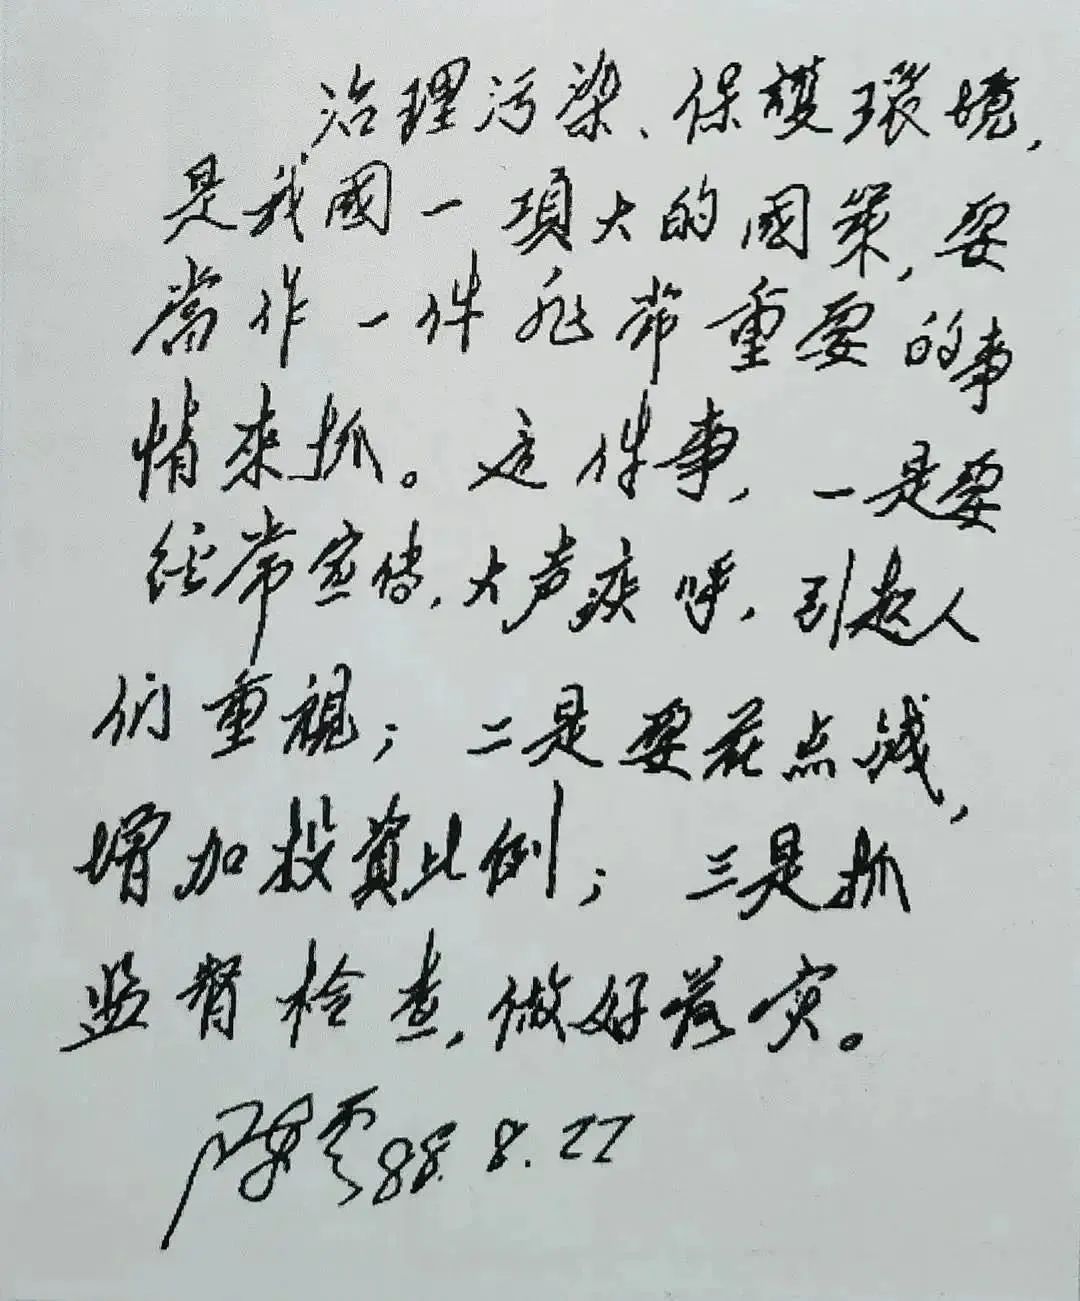 治理污染、保護環境,
是我國一項大的國策,要
當作一件非常重要的事
情來抓。这件事,一是要
经常宣传,大声疾呼,引起人
们重視;二是要花点錢,
增加投資比例;三是抓
监督检查,做好落实。
陳雲 88.8.22